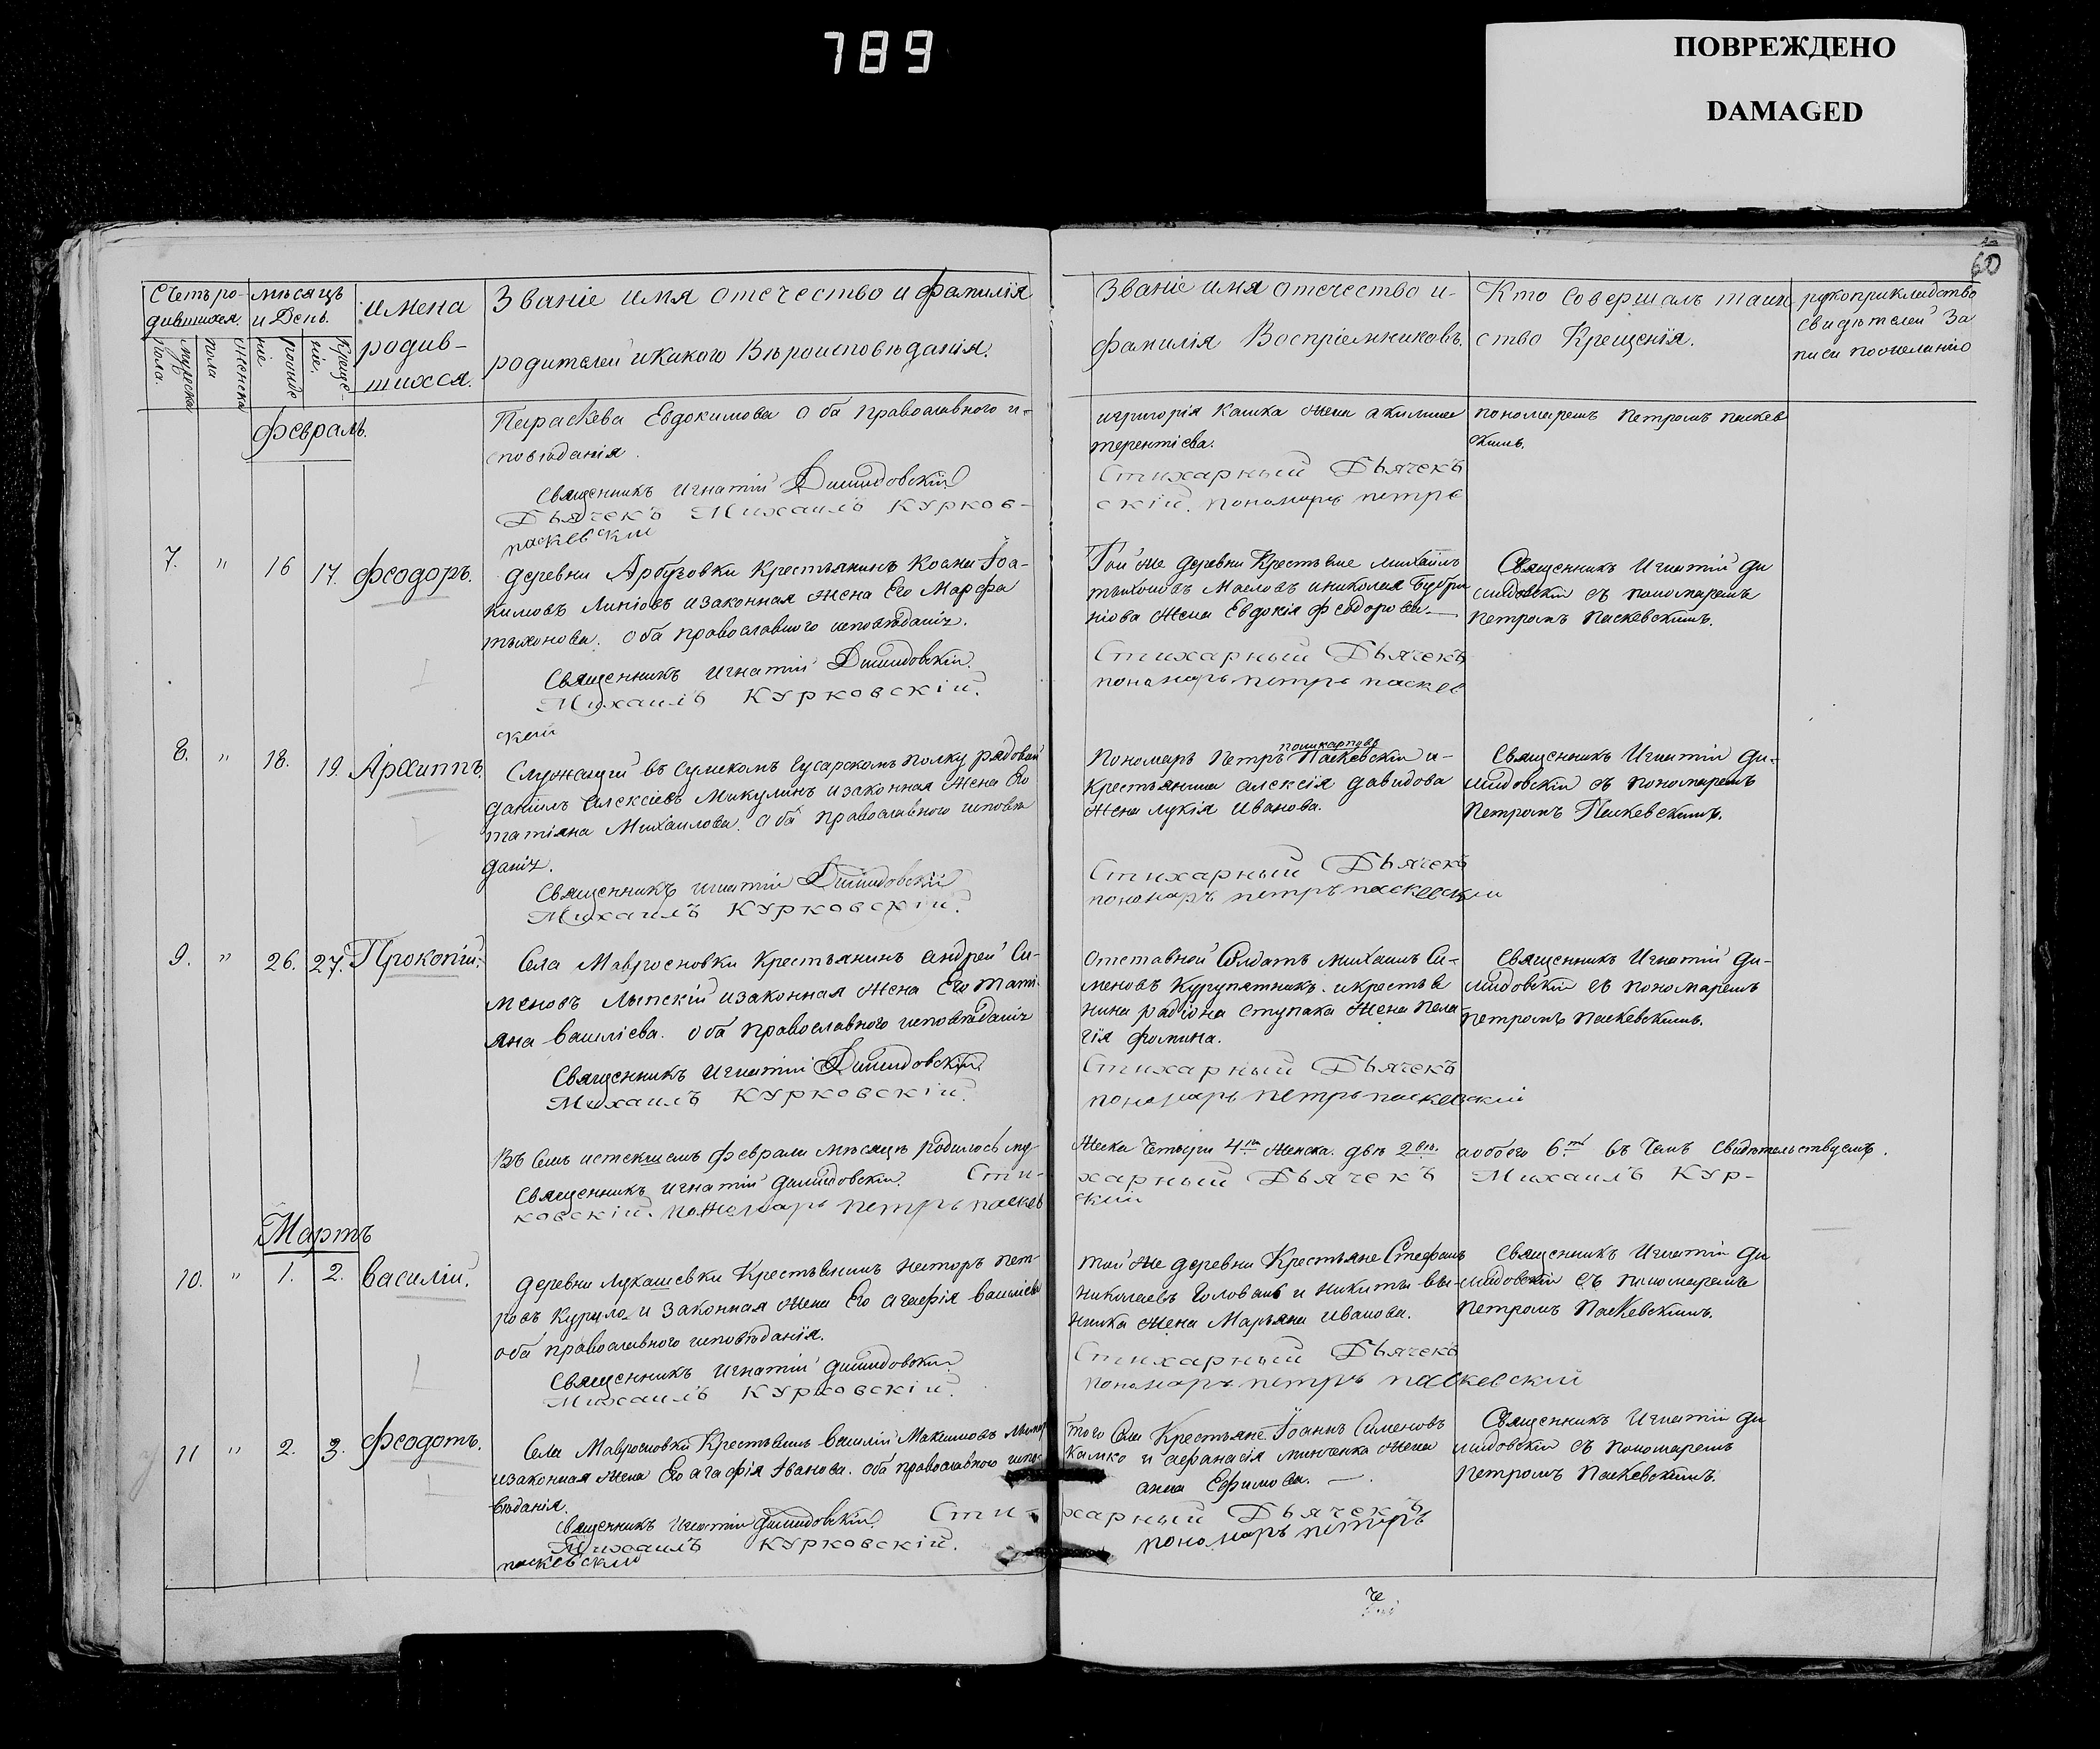 789
ПОВРЕЖДЕНО
DAMAGED
60
Счетъ ро-
дившихся.
мѣсяцъ
и День.
имена
родив-
шихся.
Званіе имя отечество и фамилія
родителей и какого Вѣроисповѣданія.
Званіе имя отечество и-
фамилія Воспріемниковъ.
Кто Совершалъ таин
ство Крещенія.
рукоприкладство
свидѣтелей За
писи по желанію
мужеска
пола.
женска
пола
рожде
ніе
Креще-
ніе.
Февраль.
Параскева Евдокимова Оба православного и-
споведанія.
Священникъ Игнатій Дишидовскій
Дьячекъ Михаилъ Курков-
паскевскій
игригорія Кашка жена акилина
терентіева.
Стихарный Дьячекъ
скій. пономарь петръ
пономаремъ Петромъ Паскев
скимъ.
7. " 16 17. Феодоръ.
Деревни Арбузовки Крестьянинъ Косма Іоа-
кимовъ Линіовъ и законная жена Его Марфа
тихонова. Оба православного исповѣданія.
Священникъ Игнатій Дишидовскій.
Михаилъ Курковскій.
скій
Той же деревни Крестьяне михаилъ
тихоновъ Масловъ и николая
жена Евдокія Федорова.
Стихарный Дьячекъ
пономарь петръ паскев
Священникъ Игнатій Ди
шидовскій съ пономаремъ
Петромъ Паскевскимъ.
8. " 18. 19. Архиппъ.
Служащій въ Сумскомъ Гусарскомъ полку рядовой
Даніилъ Алексіевъ Микулинъ и законная жена Его
татіяна Михаилова. Оба православного исповѣ
данія.
Священникъ Игнатій Дишидовскій
Михаилъ Курковскій.
поликарповъ
Пономарь Петръ Паскевскій и-
крестьянина алексія давидова
жена лукія Иванова.
Стихарный Дьячекъ
пономарь петръ паскевскій
Священникъ Игнатій Ди-
шидовскій съ пономаремъ
Петромъ Паскевскимъ.
9. " 26. 27. Прокопій.
Села Мавросновки Крестьянинъ андрей Си-
меновъ Лыпскій и законная жена Его тати-
яна Василіева. Оба православного исповѣданія
Священникъ Игнатій Дишидовскій
Михаилъ Курковскій.
Отставной Солдатъ михаилъ Си-
меновъ Кугупятникъ. и крестья
нина радіона ступака жена Пела
гія фомина.
Стихарный Дьячекъ
пономарь петръ паскевскій
Священникъ Игнатій Ди-
шидовскій съ пономаремъ
Петромъ Паскевскимъ.
Въ Семъ истекшемъ Феврали мѣсяцѣ родилось му
жеска четыри 4ри женска. двѣ 2вѣ. а обоего 6ть въ чемъ Свидѣтельствуемъ.
Священникъ Игнатій Дишидовскій. Сти-
харный Дьячекъ Михаилъ Кур-
ковскій. Пономарь петръ паскев
скій
Мартъ
10. " 1. 2. Василій.
Деревни Лукашевки Крестьянинъ несторъ пет-
ровъ Курило и законная жена Его Агафія василіева
оба православного исповѣданія.
Священникъ Игнатій Дишидовскій.
Михаилъ Курковскій.
той же деревни Крестьяне Стефанъ
Николаевъ Головань и никиты вы-
жена Марьяна иванова.
Стихарный Дьячекъ
пономарь петръ паскевскій
Священникъ Игнатій Ди
шидовскій съ пономаремъ
Петромъ Паскевскимъ.
11 " 2. 3. Феодотъ.
Села Мавросновки Крестьянинъ Василій Максимовъ
и законная жена Его агафія Іванова. Оба православного испо-
вѣданія.
Священникъ Игнатій Дишидовскій. Сти-
Михаилъ Курковскій.
паскевскій
того Села Крестьяне Іоаннъ Сименовъ
Камко и афанасія минченка жена
анна Ефимова.
харный Дьячекъ
пономарь петръ
Священникъ Игнатій Ди
шидовскій съ пономаремъ
Петромъ Паскевскимъ.